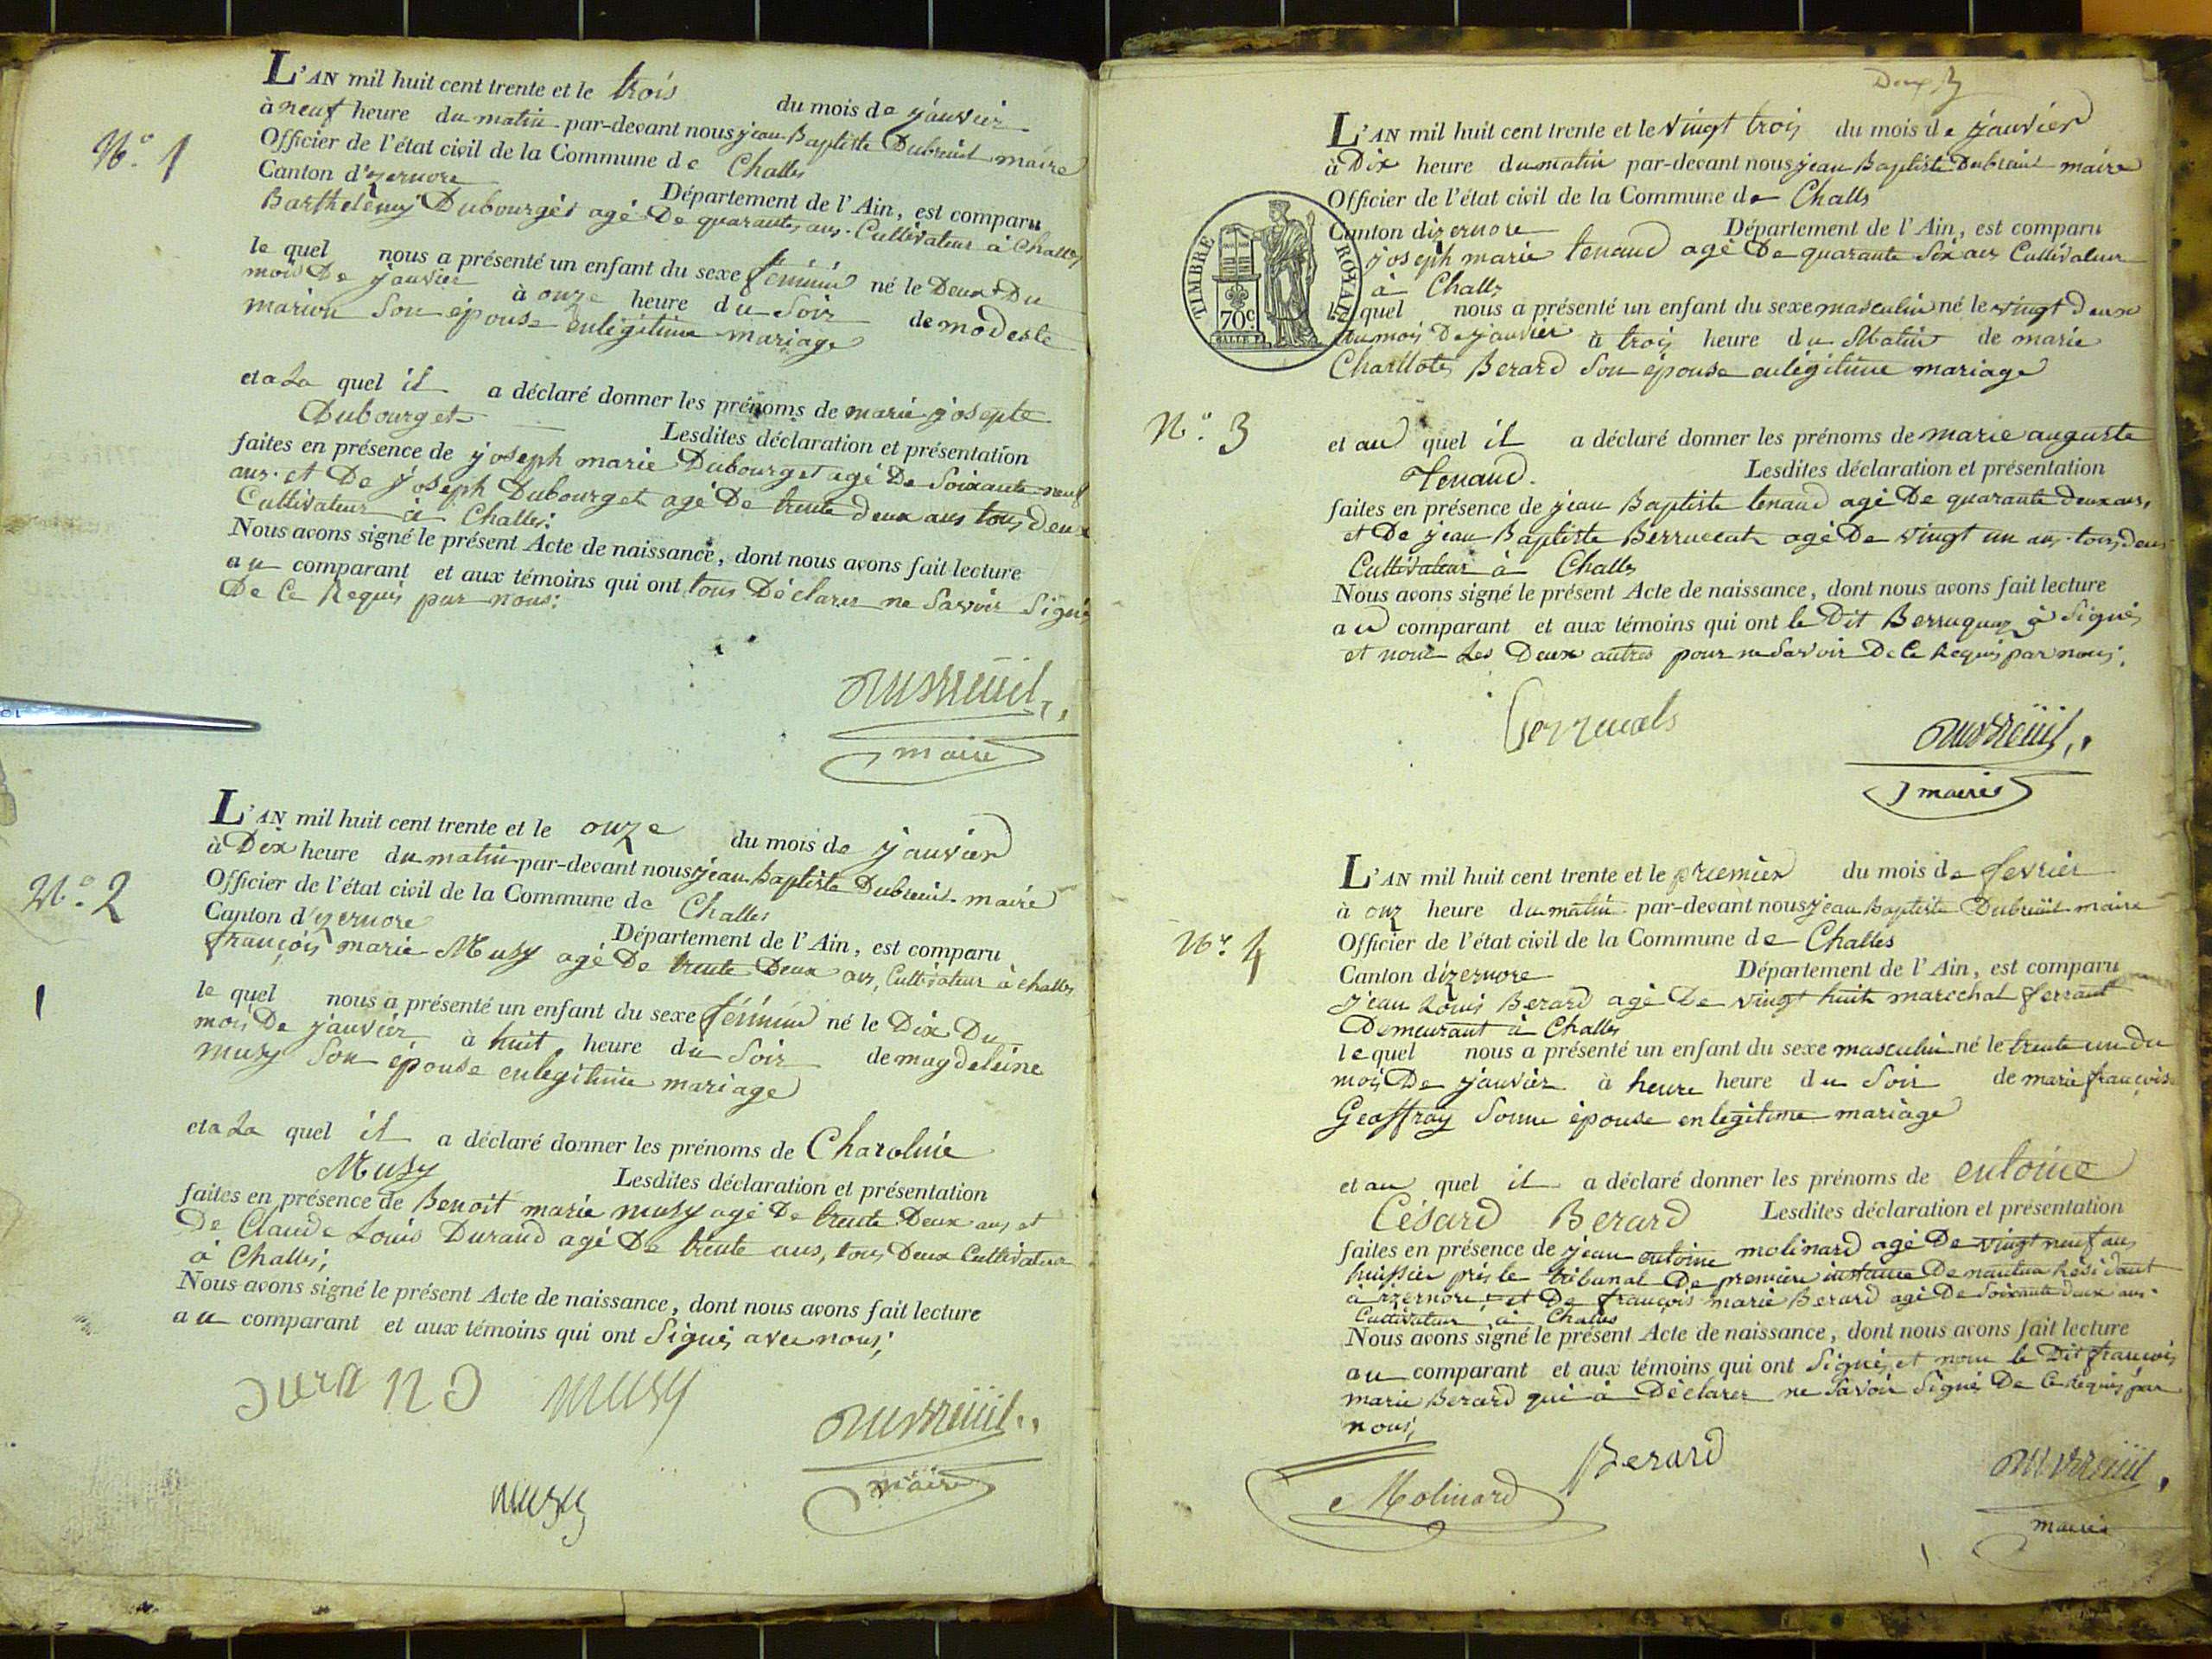 L'AN mil huit cent trente et le trois du mois de janvier
à neuf heure du matin par-devant nous jean Baptiste Dubreuil maire
Officier de l'état civil de la Commune de Challes
Canton d'izernore Département de l'Ain, est comparu
Barthelemy Dubourget agé De quarante ans Cultivateur à Challes
le quel nous a présenté un enfant du sexe féminin né le Deux Du
mois De janvier à onze heure du Soir de modeste
marion Son epouse enlégitime mariage
et a La quel il a déclaré donner les prénoms de marie josepte
Dubourget Lesdites déclaration et présentation
faites en présence de joseph marie Dubourget agé De Soixante neuf
ans. et De joseph Dubourget agé De trente deux ans tous deux
Cultivateur à Challes.
Nous avons signé le présent Acte de naissance, dont nous avons fait lecture
au comparant et aux témoins qui ont tous Déclarer ne Savoir Signé
De Ce Requis par nous.
N.º 1
Dubreüil
maire
L'AN mil huit cent trente et le onze du mois de janvier
à Dix heure du matin par-devant nous jean Baptiste Dubreuil maire
Officier de l'état civil de la Commune de Challes
N.º 2
Canton d'izernore Département de l'Ain, est comparu
françois marie Musy agé De trente Deux ans, Cultivateur à challes
le quel nous a présenté un enfant du sexe féminin né le Dix Du
mois De janvier à huit heure du Soir de magdeleine
musy Son épouse enlegitime mariage
et a La quel il a déclaré donner les prénoms de Charoline
Musy Lesdites déclaration et présentation
faites en présence de Benoit marie musy agé De trente Deux ans et
De Claude Louis Durand agé De trente ans, tous Deux Cultivateur
à Challes,
Nous avons signé le présent Acte de naissance, dont nous avons fait lecture
au comparant et aux témoins qui ont Signés avec nous,
Durand musy Dubreüil
musy maire
L'AN mil huit cent trente et le vingt trois du mois de janvier
à Dix heure du matin par-devant nous jean Baptiste Dubreuil maire
Officier de l'état civil de la Commune de Challes
Canton dizernore Département de l'Ain, est comparu
joseph marie tenand agé De quarante Six ans Cultivateur
à Challes
le quel nous a présenté un enfant du sexe masculin né le vingt deux
du mois De janvier à trois heure du Matin de marie
Charllote Berard Son épouse enlégitime mariage
TIMBRE ROYAL
70c
N.º 3
et au quel il a déclaré donner les prénoms de marie auguste
Tenand. Lesdites déclaration et présentation
faites en présence de jean Baptiste tenand agé De quarante deux ans,
et De jean Baptiste Berruccat agé De vingt un ans tous deux
Cultivateur à Challes
Nous avons signé le présent Acte de naissance, dont nous avons fait lecture
au comparant et aux témoins qui ont le Dit à Signé
et nom Les Deux autres pour ne Savoir De Ce Requis par nous.
Dubreüil
maire
L'AN mil huit cent trente et le premier du mois de fevrier
à onz heure du matin par-devant nous jean baptiste Dubreüil maire
Officier de l'état civil de la Commune de Challes
N.º 4
Canton dizernore Département de l'Ain, est comparu
jean Louis Berard agé De vingt huit marechal ferrant
Demeurant à Challes
le quel nous a présenté un enfant du sexe masculin né le trente un du
mois De janvier à heure heure du Soir de marie françoise
Geoffray Sonne épouse enlegitime mariage
et au quel il a déclaré donner les prénoms de entoine
Césard Berard Lesdites déclaration et présentation
faites en présence de jean entoine molinard agé De vingt neuf ans
huissier près le tribunal De première instance De nantua Résidant
à izernore, et De françois marie Berard agé De Soixante deux ans.
Cultivateur à Challes
Nous avons signé le présent Acte de naissance, dont nous avons fait lecture
au comparant et aux témoins qui ont Signés et nom le Dit françois
marie Berard qui à Déclarer ne Savoir Signé De Ce Requis par
nous,
Molinard Berard Dubreüil
maire